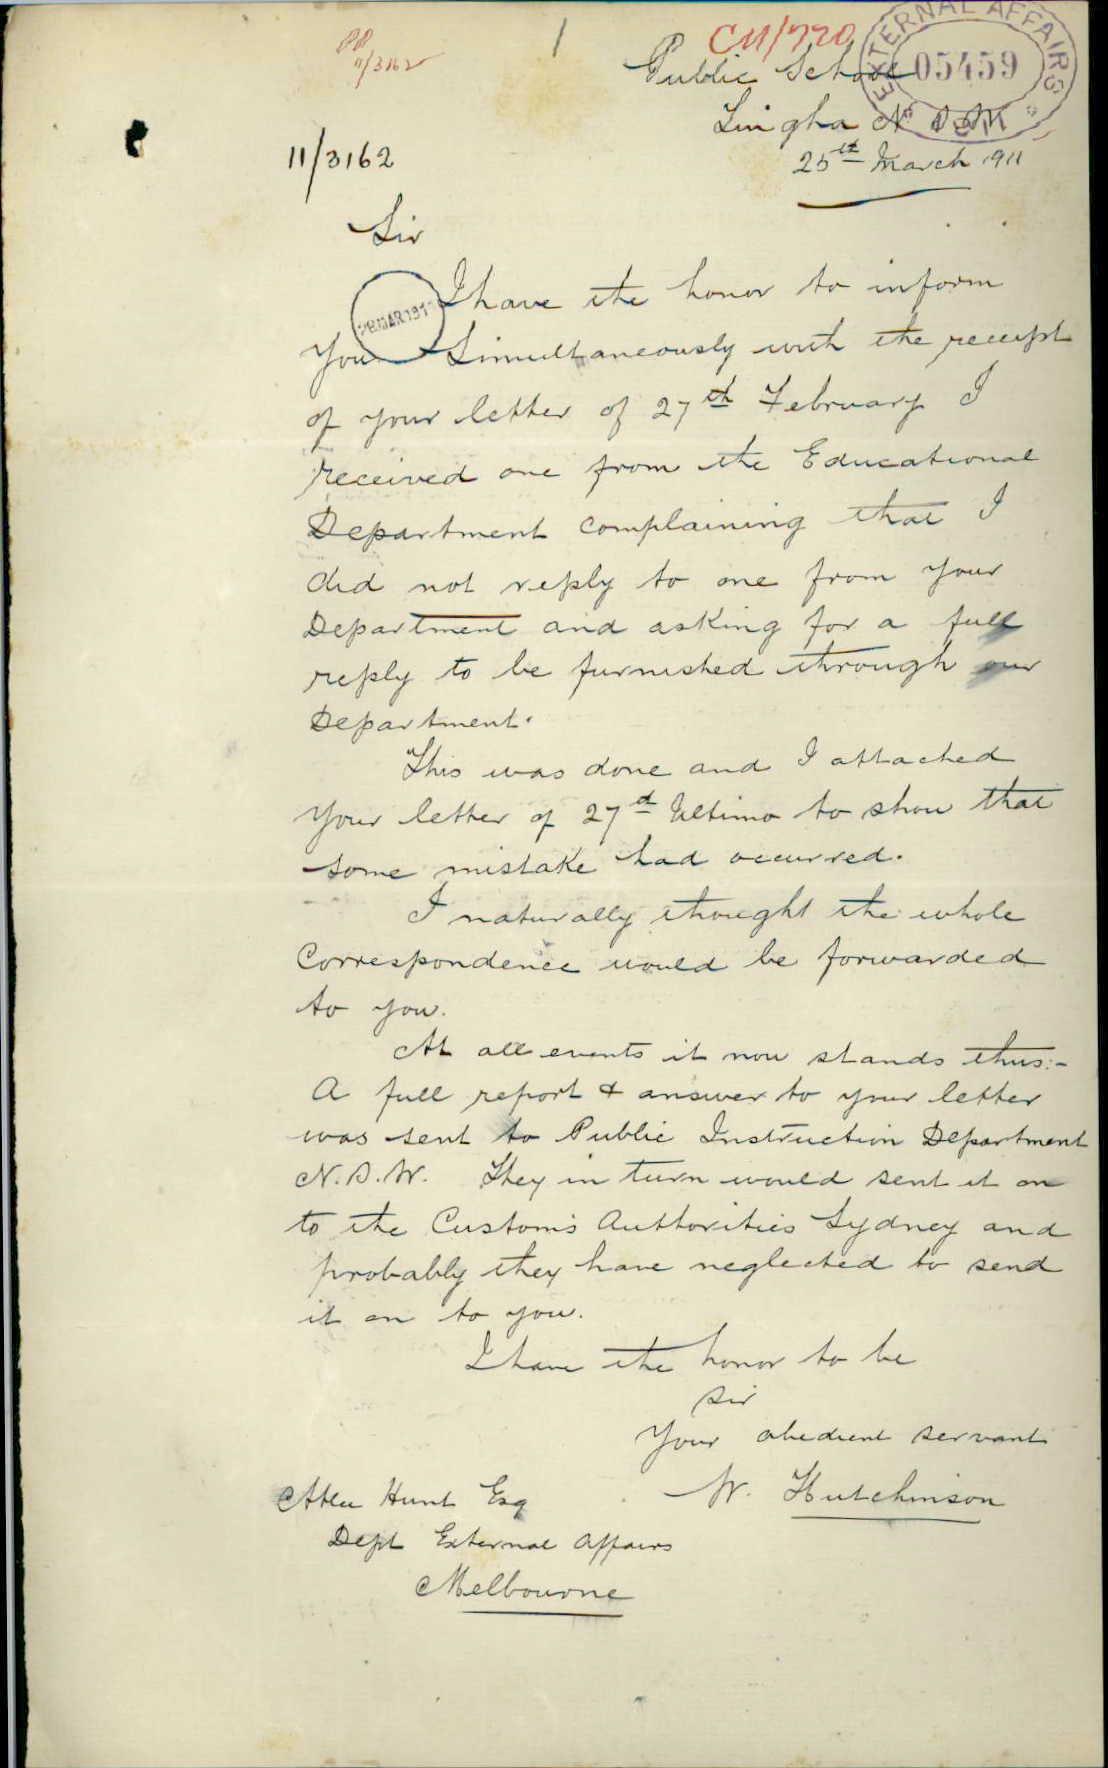 PP
11/3162
C11/770
EXTERNAL AFFAIRS
05459
Public School
Tingha N.S.W
25th March 1911
11/3162
Sir
28 MAR 1911
I have the honor to inform
you Simultaneously with the receipt
of your letter of 27th February I
received one from the Educational
Department complaining that I
did not reply to one from your
Department and asking for a full
reply to be furnished through our
Department.
This was done and I attached
your letter of 27th Ultimo to show that
some mistake had occurred.
I naturally thought the whole
Correspondence would be forwarded
to you.
At all events it now stands thus:-
A full report & answer to your letter
was sent to Public Instruction Department
N.S.W. They in turn would sent it on
to the Customs Authorities Sydney and
probably they have neglected to send
it on to you.
I have the honor to be
Sir
Your obedient servant
W. Hutchinson
Atlee Hunt Esq
Dept External Affairs
Melbourne